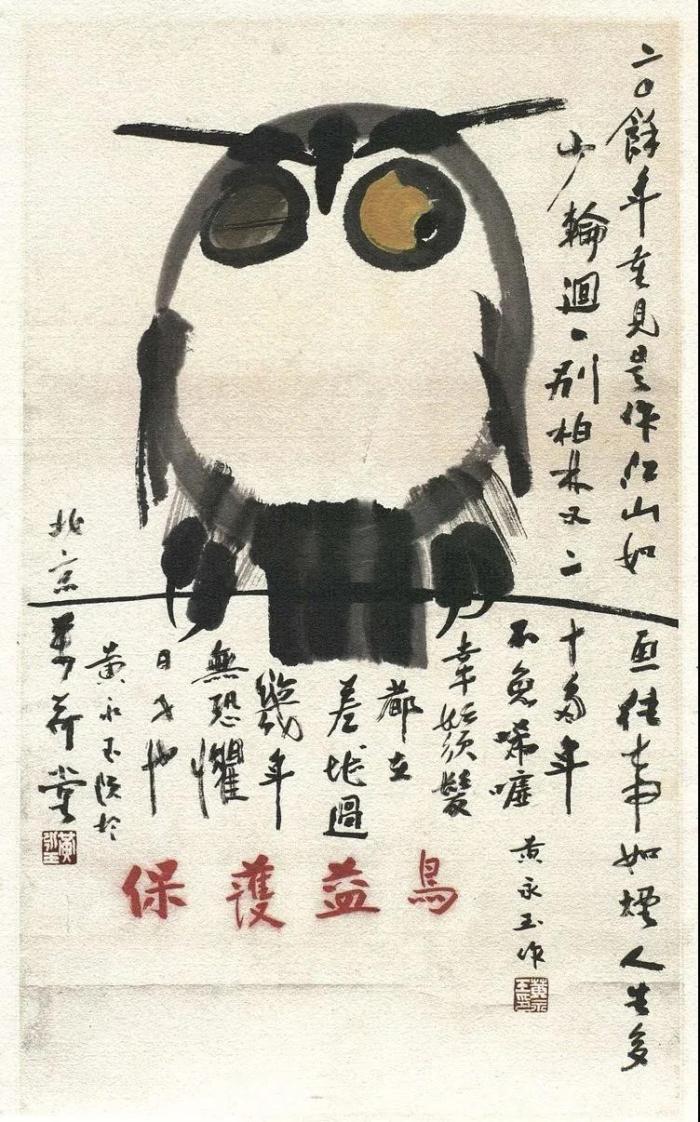 二〇餘年重見是作江山如画往事如煙人生多
少輪迴一别柏林又二十多年
不免唏嘘
黄永玉作
黄永玉印
幸好须髮
都在
差堪過
幾年
無恐懼
日子也
黄永玉 题於
北京萬荷堂
保護益鳥